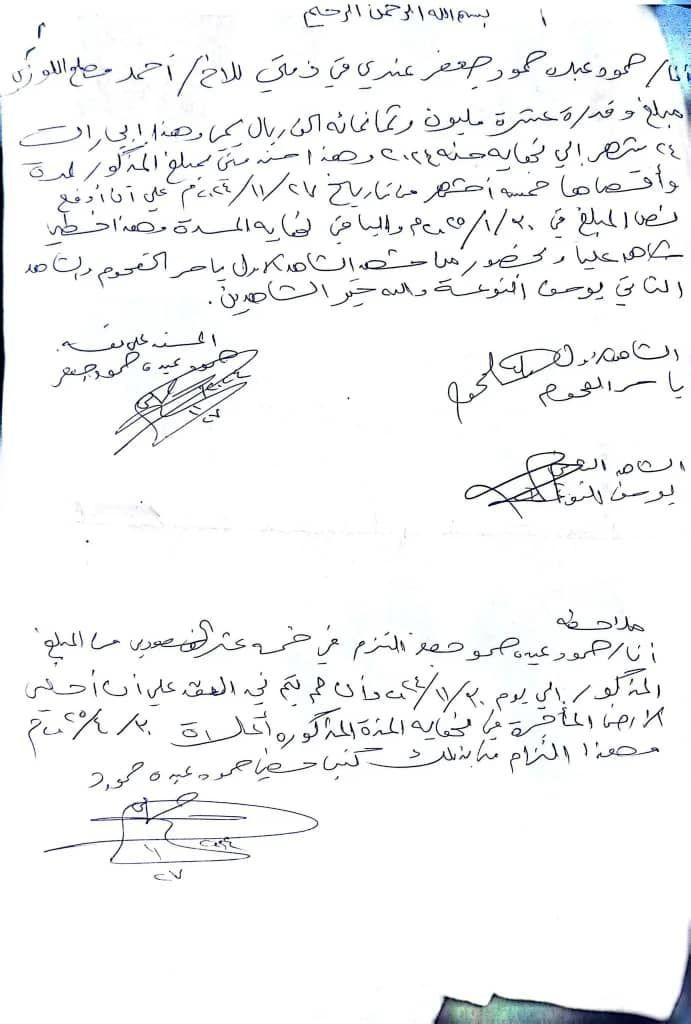 بسم الله الرحمن الرحيم
أنا/ حمود عبده حمود جعفر عندي في ذمتي للاخ/ أحمد مصلح اللوزي
مبلغ وقدرة عشرة مليون وثمانمائه الف ريال يمي وهذا إيجارات
٢٤ شهر إلي نهايه سنه ٢٠٢٤ وهذا سند مني بمبلغ المذكور لمدة
وأقصاها خمسه أشهر من تاريخ ٢٧/١١/٢٠٢٤م علي أن أدفع
نص المبلغ في ٣٠/١/٢٠٢٥م والباقي نهايه المدة وهذا خطي
شاهد عليا وبحضور من الشاهد الاول ياسر القحوم والشاهد
الثاني يوسف النوعة والله خير الشاهدين.
علي نفسه
حمود عبده حمود جعفر
٢٠٢٤
١١
٢٧
الشاهد الاول
ياسر القحوم
الشاهد الثاني
يوسف النوعة
ملاحظه
أنا/ حمود عبده حمود جعفر التزم في خمسه عشر الف سعودي من المبلغ
المذكور إلي يوم ٣٠/١١/٢٠٢٤ وأن لم يتم في العقد علي أن أخلي
الارض المأجرة في نهايه المدة المذكوره أعلاة ٣٠/٤/٢٠٢٥م
وهذا التزام مني بذلك كتب حمود عبده حمود
٢٠٢٤
١١
٢٧